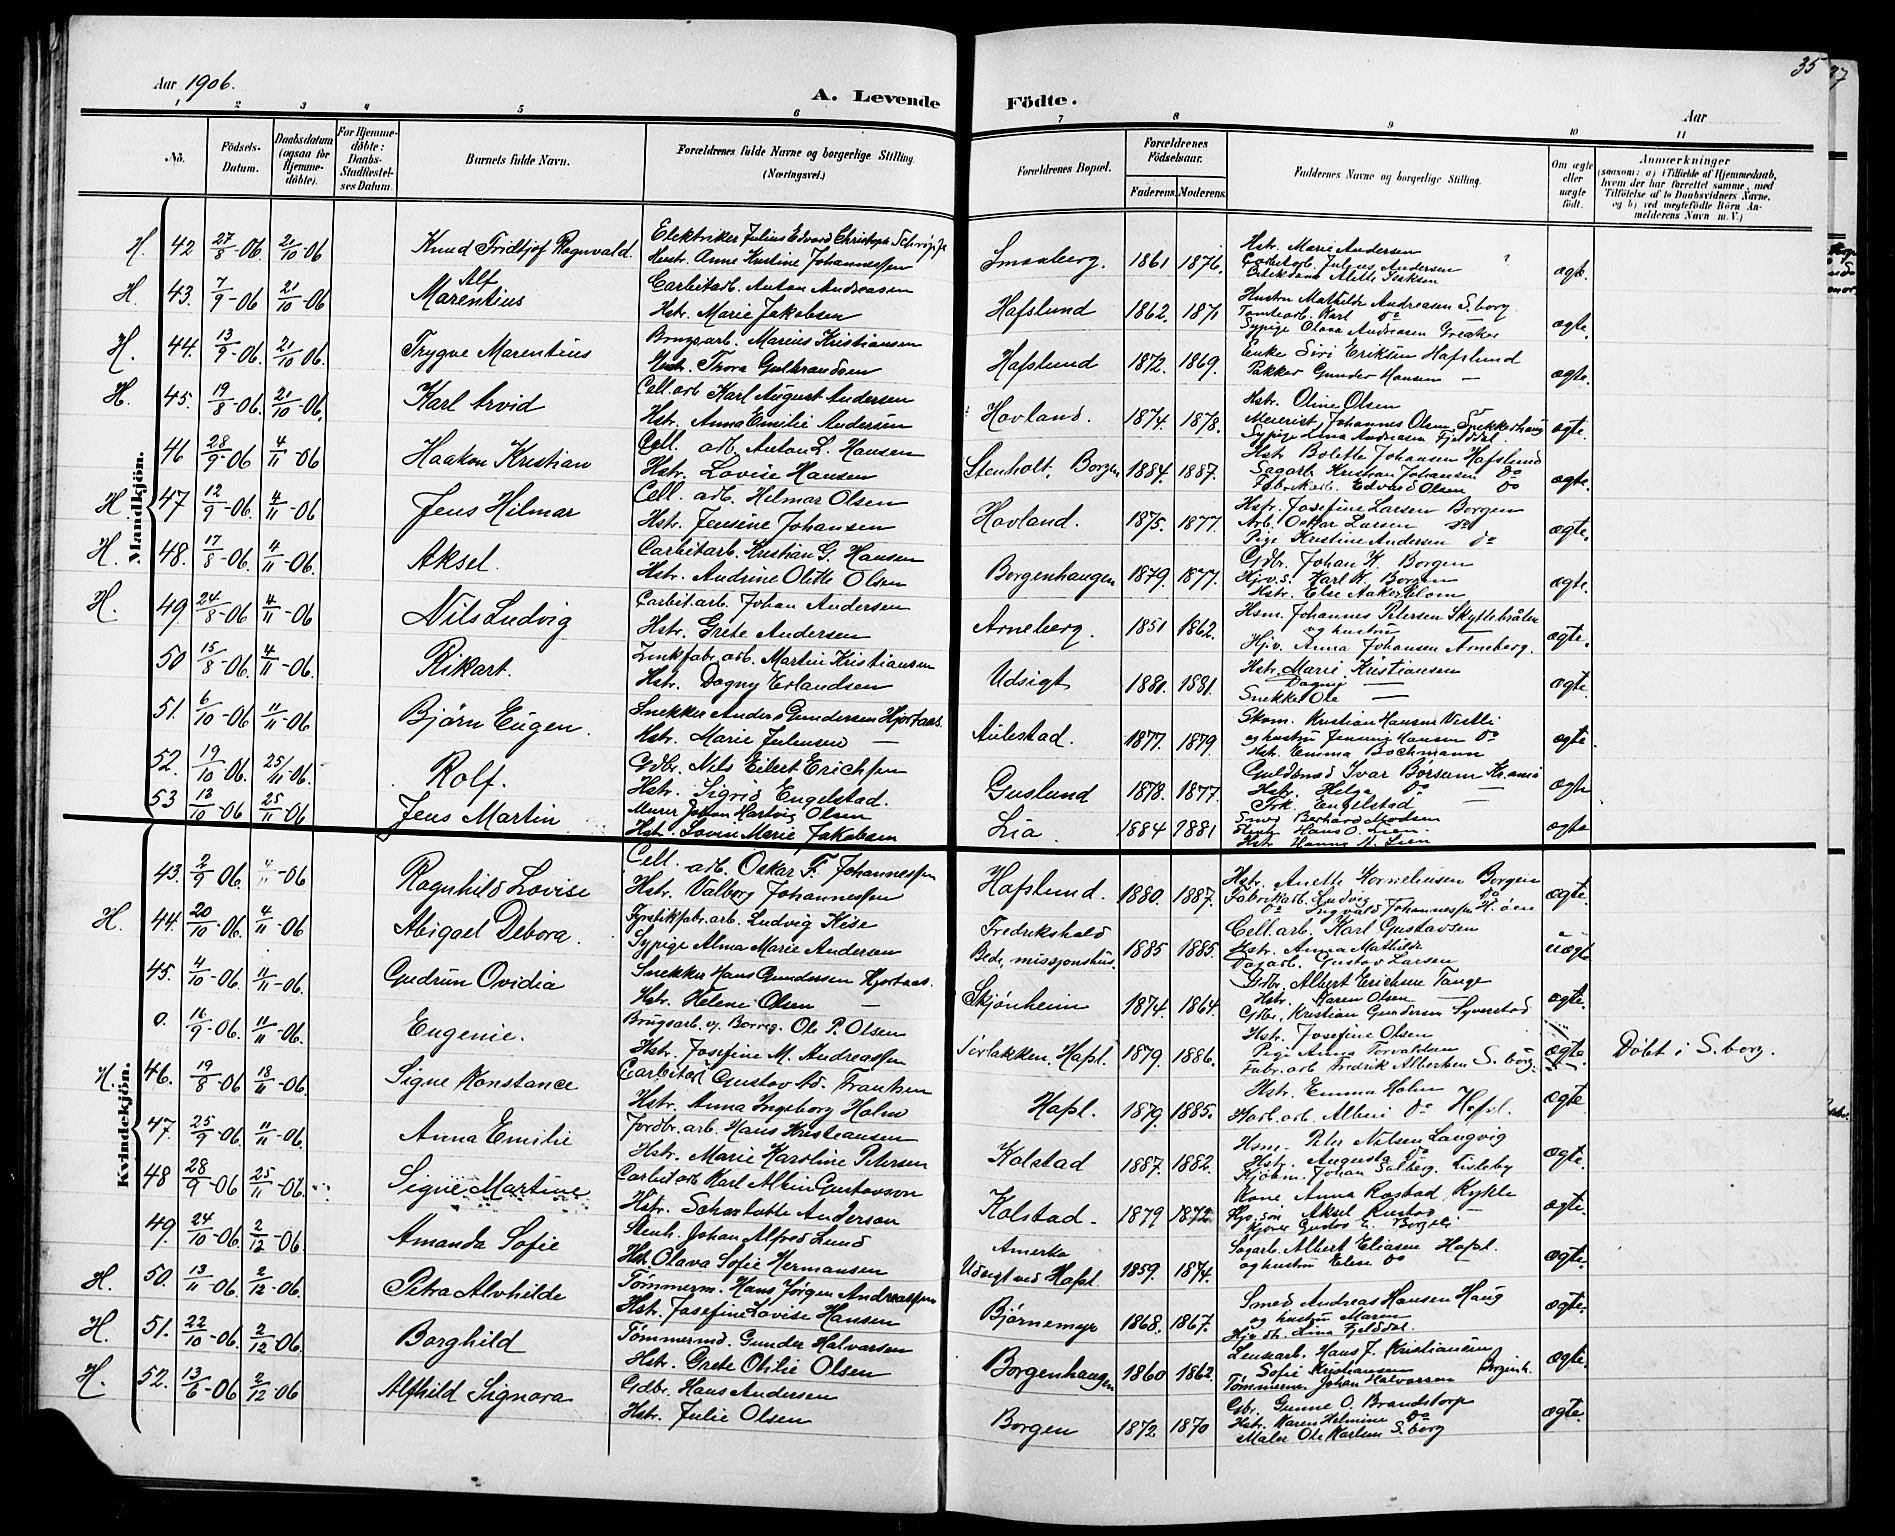 35
37
Aar 1906.
A. Levende Födte.
Aar
1 2 3 4 5 6 7 8 9 10 11
No.
Födsels-Datum.
Daabsdatum (ogsaa for Hjemme-döbte).
For Hjemme-döbte: Daabs-Stadfæstel-ses Datum.
Barnets fulde Navn.
Forældrenes fulde Navne og borgerlige Stilling. (Næringsvei.)
Forældrenes Bopæl.
Forældrenes Födselsaar.
Faderens. Moderens.
Faddernes Navne og borgerlige Stilling.
Om ægte eller uægte födt.
Anmærkninger
(saasom: a) i Tilfælde af Hjemmedaab,
hvem der har forrettet samme, med
Tilföielse af to Daabsvidners Navne.
og b) ved uægtefödte Börn An-
melderens Navn m. V.)
Mandkjön.
H. 42 27/8-06. 21/10-06 Knud Fridtjof Ragnvald. Elektriker Julius Edvard Christoph
Hstr. Anne Kristine Johannessen Smaaberg. 1861 1876. Hstr. Marie Andersen
Carbitarb. Julius Andersen
ægte.
H. 43. 7/9-06 21/10-06 Alf Marentius Carbitarb. Anton Andreasen
Hstr. Marie Jakobsen Hafslund 1862. 1871 Hustru Mathilde Andreasen S.borg
Tomtearb. Karl do
Sypige Olava Andreasen Greaker ægte.
H. 44. 13/9-06. 21/10 06. Trygve Marentius Brugsarb. Marius Kristiansen
Hstr. Thora Gulbrandsen Hafslund 1872. 1869. Enke Siri Eriksen Hafslund
Pakker Gunder Hansen — ægte.
H. 45. 19/8-06. 21/10-06. Karl Arvid Cell. arb Karl August Andersen
Hstr. Anna Emilie Andersen Hovland. 1874 1878. Hstr. Oline Olsen
Meierist Johannes Olsen
Sypige Lina Andreasen Fjelddal. ægte.
46 28/9-06 4/11-06 Haakon Kristian Cell. arb. Anton L. Hansen
Hstr. Lovise Hansen Stenholt. Borgen 1884. 1887. Hstr Bolette Johansen Hafslund
Sagarb. Kristian Johansen do
Fabrikarb. Edvard Olsen do ægte.
H. 47 12/9-06. 4/11-06 Jens Hilmar Cell. arb. Hilmar Olsen
Hstr. Jensine Johansen Hovland. 1875. 1877. Hstr. Josefine Larsen Borgen
Arb. Oskar Larsen do
Pige Kristine Andersen do ægte.
H. 48. 17/8-06. 4/11-06. Aksel. Carbitarb. Kristian G. Hansen
Hstr. Andrine Olette Olsen Borgenhaugen 1879. 1877. Gdbr. Johan K. Borgen
Hjv.s. Karl K. Borgen
Hstr. Else Aakerblom ægte.
H. 49 24/8-06 4/11-06 Nils Ludvig Carbit.arb. Johan Andersen
Hstr. Grete Andersen Arneberg. 1851 1862. Hsm. Johannes Petersen Skyttebråten
og hustru —
Hjv. Anna Johansen Arneberg. ægte.
50 15/8-06 4/11-06. Rikart. Zinkfabr. arb. Martin Kristiansen
Hstr. Dagny Erlandsen Udsigt 1881. 1881. Hstr. Marie Kristiansen
Dagny —
Snekker Ole — ægte.
51. 6/10-06 11/11-06 Bjørn Eugen. Snekker Anders Gundersen Hjortaas.
Hstr. Marie Julensen — Aulestad. 1877. 1879. Skom. Kristian Hansen Vestli
og hustru Jenny Hansen do
Hstr. Emma Bochmann ægte.
52. 19/10-06. 25/11-06. Rolf. Gdbr. Nils Eilert Erichsen
Hstr. Sigrid Engelstad. Guslund 1878. 1877. Guldsmed Ivar Børsum Kr.ania
Hstr. Helga do —
Frk. Engelstad — ægte
53 13/10-06 25/11-06 Jens Martin Murer Johan Hartvig Olsen
Hstr. Lovise Marie Jakobsen Lia. 1884 1881 Smed Berhard Madsen
Hans O. Lien.
Hstr. Hanna M. Lien ægte
Kvindekjön.
43. 2/9-06. 4/11-06 Ragnhild Lovise Cell. arb. Oskar F. Johannessen
Hstr. Valborg Johannessen Hafslund. 1880. 1887. Hstr. Anette Korneliussen Borgen
Fabrikarb. Ludvig do
do Ingvald Johannessen H.øen ægte.
H. 44. 20/10-06. 4/11-06 Abigael Debora. Fyrstikfabr.arb. Ludvig Kise
Sypige Alma Marie Andersen Fredrikshald
Bede, missjonshus. 1885 1885. Cell.arb. Karl Gustavsen
Hstr. Anna Mathilde
Dagarb. Gustav Larsen uægte
45. 4/10-06. 11/11-06. Gudrun Ovidia Snekker Hans Gundersen Hjortaas.
Hstr. Helene Olsen — Skjønheim 1874. 1864. Gdbr. Albert Erichsen Tange
Hstr. Karen Olsen —
Gdbr. Kristian Gundersen Syverstad ægte.
0. 16/9-06. 11/11-06. Eugenie. Brugsarb. v. Borreg. Ole P. Olsen
Hstr. Josefine M. Andreassen Hafsl. 1879. 1886. Hstr. Josefine Olsen
Pige Anna Torvaldsen
Fabr.arb Fredrik Albertsen S.borg. ægte Döbt i S.borg.
H. 46. 19/8-06. 18/11-06. Signe Konstance Carbitarb Gustav Ad. Frantzen
Hstr. Anna Ingeborg Holm Hafsl. 1879. 1885. Hstr. Emma Holm
Karb.arb. Albin do Hafsl. ægte
47. 25/9-06. 11/11-06. Anna Emilie Jordbr.arb. Hans Kristiansen
Hstr. Marie Karoline Petersen Kolstad 1887. 1882. Hsm. Peter Nilsen Langvig
Hstr. Augusta do
Kjøbm. Johan Solberg. Lisleby ægte.
48 28/9-06 25/11-06 Signe Martine Carbitarb Karl Albin Gustavson
Hstr. Scharlotte Anderson Kolstad- 1879 1872 Kone Anna Rostad, Kykle
Hjv.søn Aksel Rustad —
Kjører Gustav E. Borgeli ægte.
49. 24/10-06. 2/12-06. Amanda Sofie Stenh. Johan Alfred Lund
Hstr Olava Sofie Hermansen Amerka
Udsigt ved Hafsl. 1859. 1874. Sagarb. Albert Eliasen Hafsl.
og hustru Elise do ægte.
H. 50. 13/11-06 2/12-06. Petra Alvhilde Tømmerm. Hans Jørgen Andreassen
Hstr. Josefine Lovise Hansen Bjørnemyr 1868. 1867. Smed Andreas Hansen Haug
og hustru Maren
Hjv.dtr. Lina Fjelddal. ægte.
H. 51. 22/10-06. 2/12-06. Borghild Tømmermd. Gunder Halvorsen
Hstr. Grete Otilie Olsen Borgenhaugen 1860 1862. Lensearb. Hans J. Kristiansen
Sofie Kristiansen
Tømmerm. Johan Halvorsen Borgenh. ægte.
H. 52. 13/6-06 2/12-06 Alfhild Signora Gdbr. Hans Andersen
Hstr. Julie Olsen Borgen 1872 1870 Gbr. Gunne O. Brandstorp
Hstr. Karen Helmine do
Maler Ole Karlsen S.borg ægte.